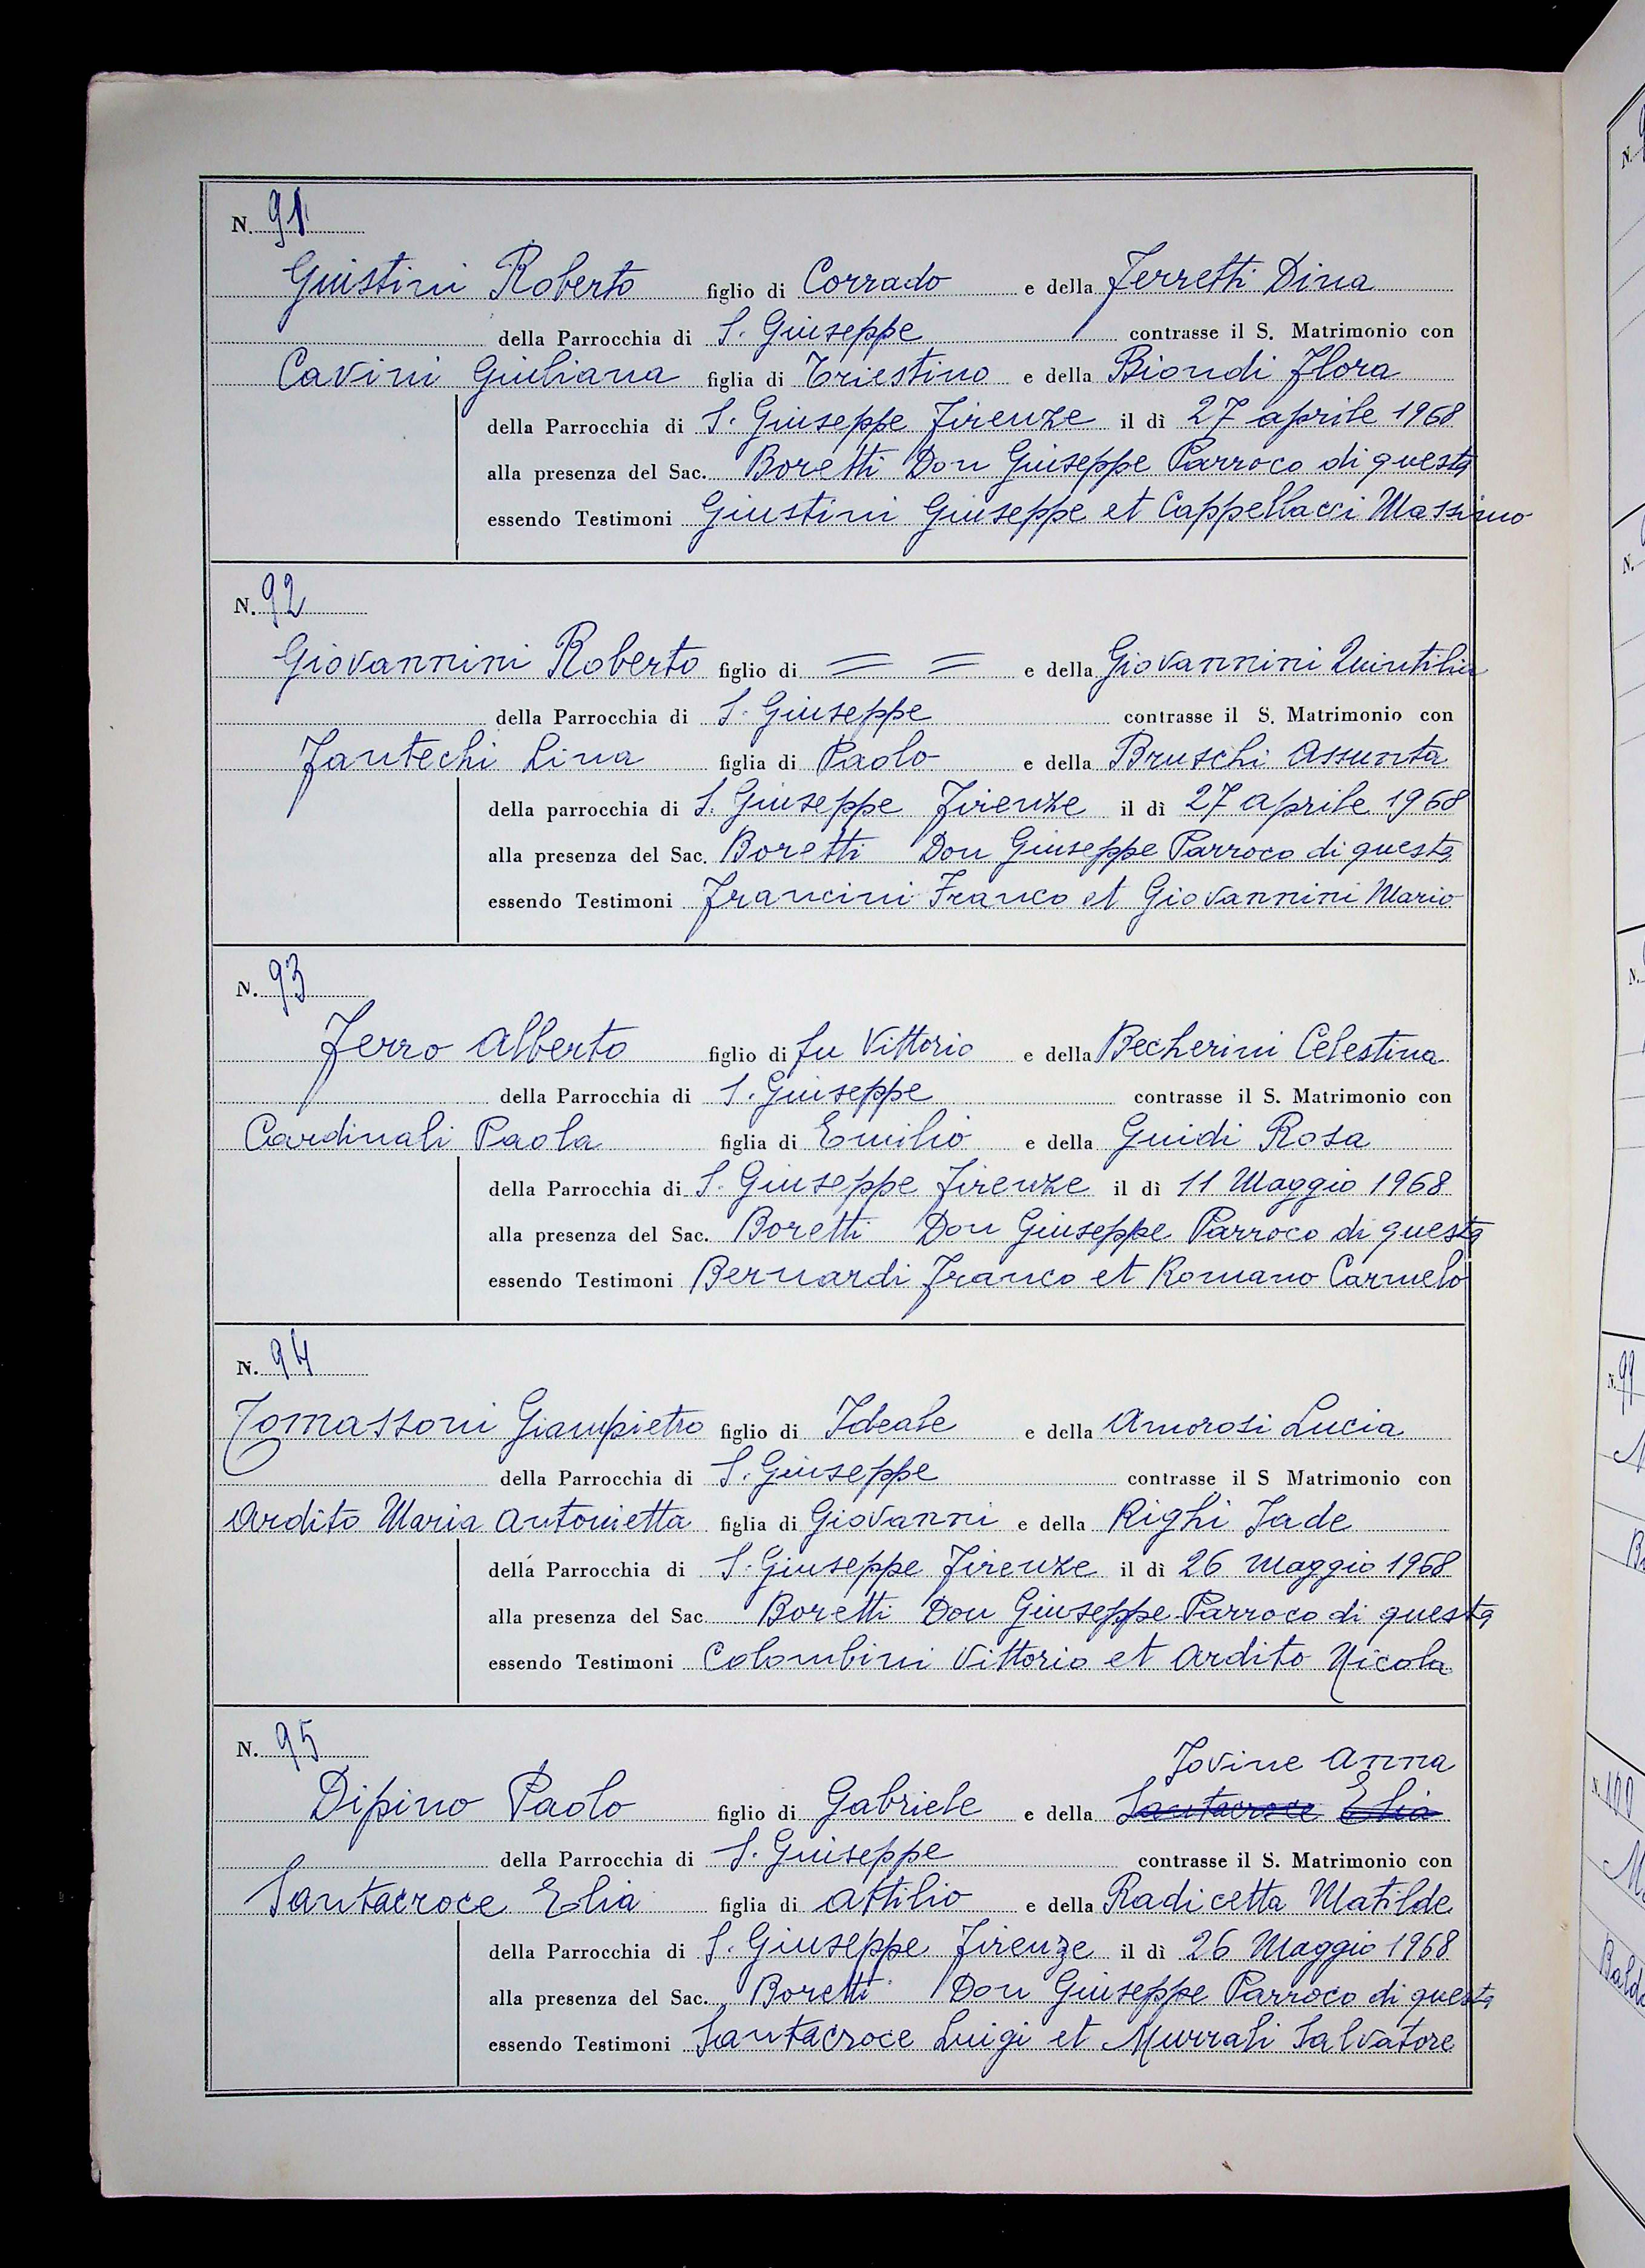 N. 91
Giustini Roberto figlio di Corrado e della Ferretti Dina
della Parrocchia di S. Giuseppe contrasse il S. Matrimonio con
Cavini Giuliana figlia di Triestino e della Biondi Flora
della Parrocchia di S. Giuseppe Firenze il dì 27 aprile 1968
alla presenza del Sac. Boretti Don Giuseppe Parroco di questa
essendo Testimoni Giustini Giuseppe et Cappellacci Massimo
N. 92
Giovannini Roberto figlio di = = e della Giovannini Quintilia
della Parrocchia di S. Giuseppe contrasse il S. Matrimonio con
Fantechi Lina figlia di Paolo e della Bruschi Assunta
della parrocchia di S. Giuseppe Firenze il dì 27 aprile 1968
alla presenza del Sac. Boretti Don Giuseppe Parroco di questa
essendo Testimoni Francini Franco et Giovannini Mario
N. 93
Ferro Alberto figlio di fu Vittorio e della Becherini Celestina
della Parrocchia di S. Giuseppe contrasse il S. Matrimonio con
Cardinali Paola figlia di Emilio e della Guidi Rosa
della Parrocchia di S. Giuseppe Firenze il dì 11 Maggio 1968
alla presenza del Sac. Boretti Don Giuseppe Parroco di questa
essendo Testimoni Bernardi Franco et Romano Carmelo
N. 94
Tomassoni Giampietro figlio di Ideale e della Amorosi Lucia
della Parrocchia di S. Giuseppe contrasse il S Matrimonio con
Ardito Maria Antonietta figlia di Giovanni e della Righi Jade
dellá Parrocchia di S. Giuseppe Firenze il dì 26 Maggio 1968
alla presenza del Sac. Boretti Don Giuseppe Parroco di questa
essendo Testimoni Colombini Vittorio et Ardito Nicola
N. 95
Jovine Anna
Dipino Paolo figlio di Gabriele e della Santacroce Elia
della Parrocchia di S. Giuseppe contrasse il S. Matrimonio con
Santacroce Elia figlia di Attilio e della Radicetta Matilde
della Parrocchia di S. Giuseppe Firenze il dì 26 Maggio 1968
alla presenza del Sac. Boretti Don Giuseppe Parroco di questa
essendo Testimoni Santacroce Luigi et Murrali Salvatore
N. 99
N. 100